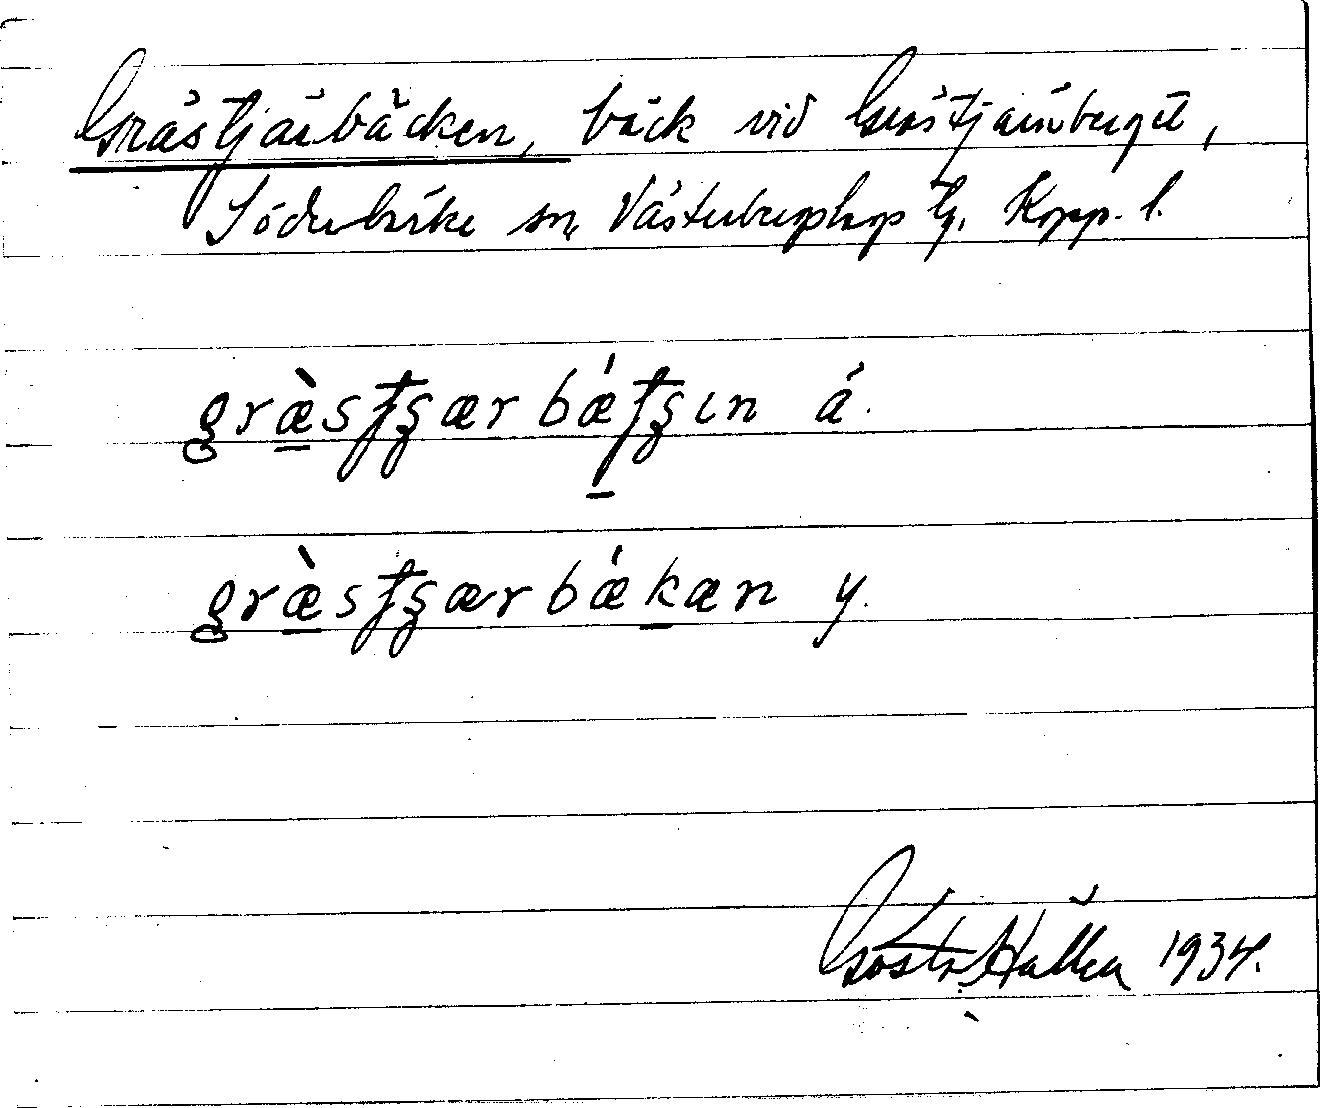 Grästjärbäcken, bäck vid Grästjärnberget,
Söderbärke sn, Västerbergslags tg. Kopp. l.
græ̀stʃærbǽtʃın ä.
græ̀stʃærbǽkæn y.
Gösta Hallen 1934.